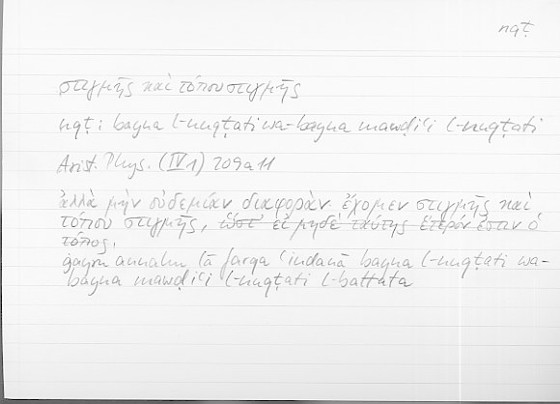 nqṭ
στιγμῆς καὶ τόπου στιγμῆς
nqṭ : bayna l-nuqṭati wa-bayna mawḍiʿi l-nuqṭati
Arist. Phys. (IV 1) 209a11
ἀλλὰ μὴν οὐδεμίαν διαφορὰν ἔχομεν στιγμῆς καὶ
τόπου στιγμῆς, ὥστ’ εἰ μηδὲ ταύτης ἕτερόν ἐστιν ὁ
τόπος,
ġayra annahu lā farqa ʿindanā bayna l-nuqṭati wa-
bayna mawḍiʿi l-nuqṭati l-battata